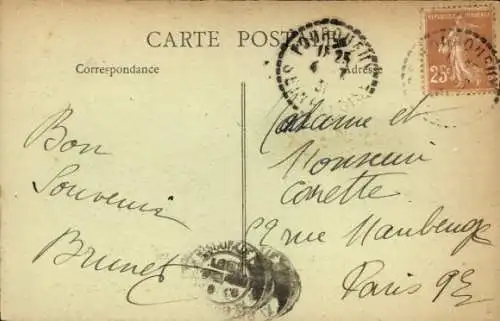 CARTE POSTALE
Correspondance
Adresse
Bon
Souvenir
Brunet
Madame et
Monsieur
52 rue Maubeuge
Paris 9e
25c